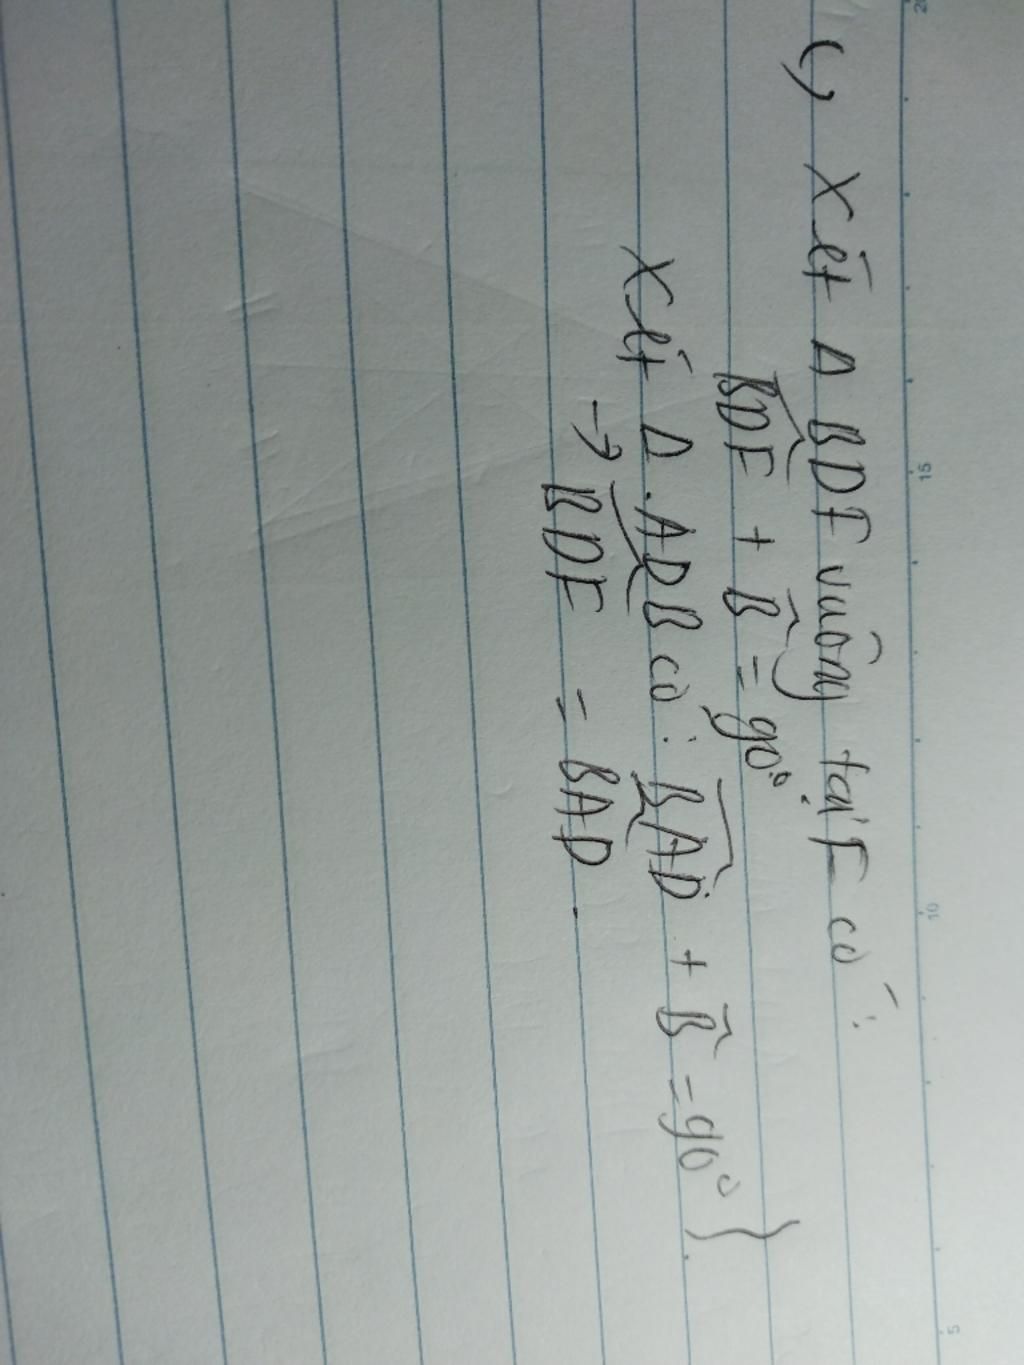 c, Xét Δ BDF vuông tại F có:
BDF + B = 90°
Xét Δ ADB có: BAD + B = 90° }
→ BDF = BAD.
20
15
10
5